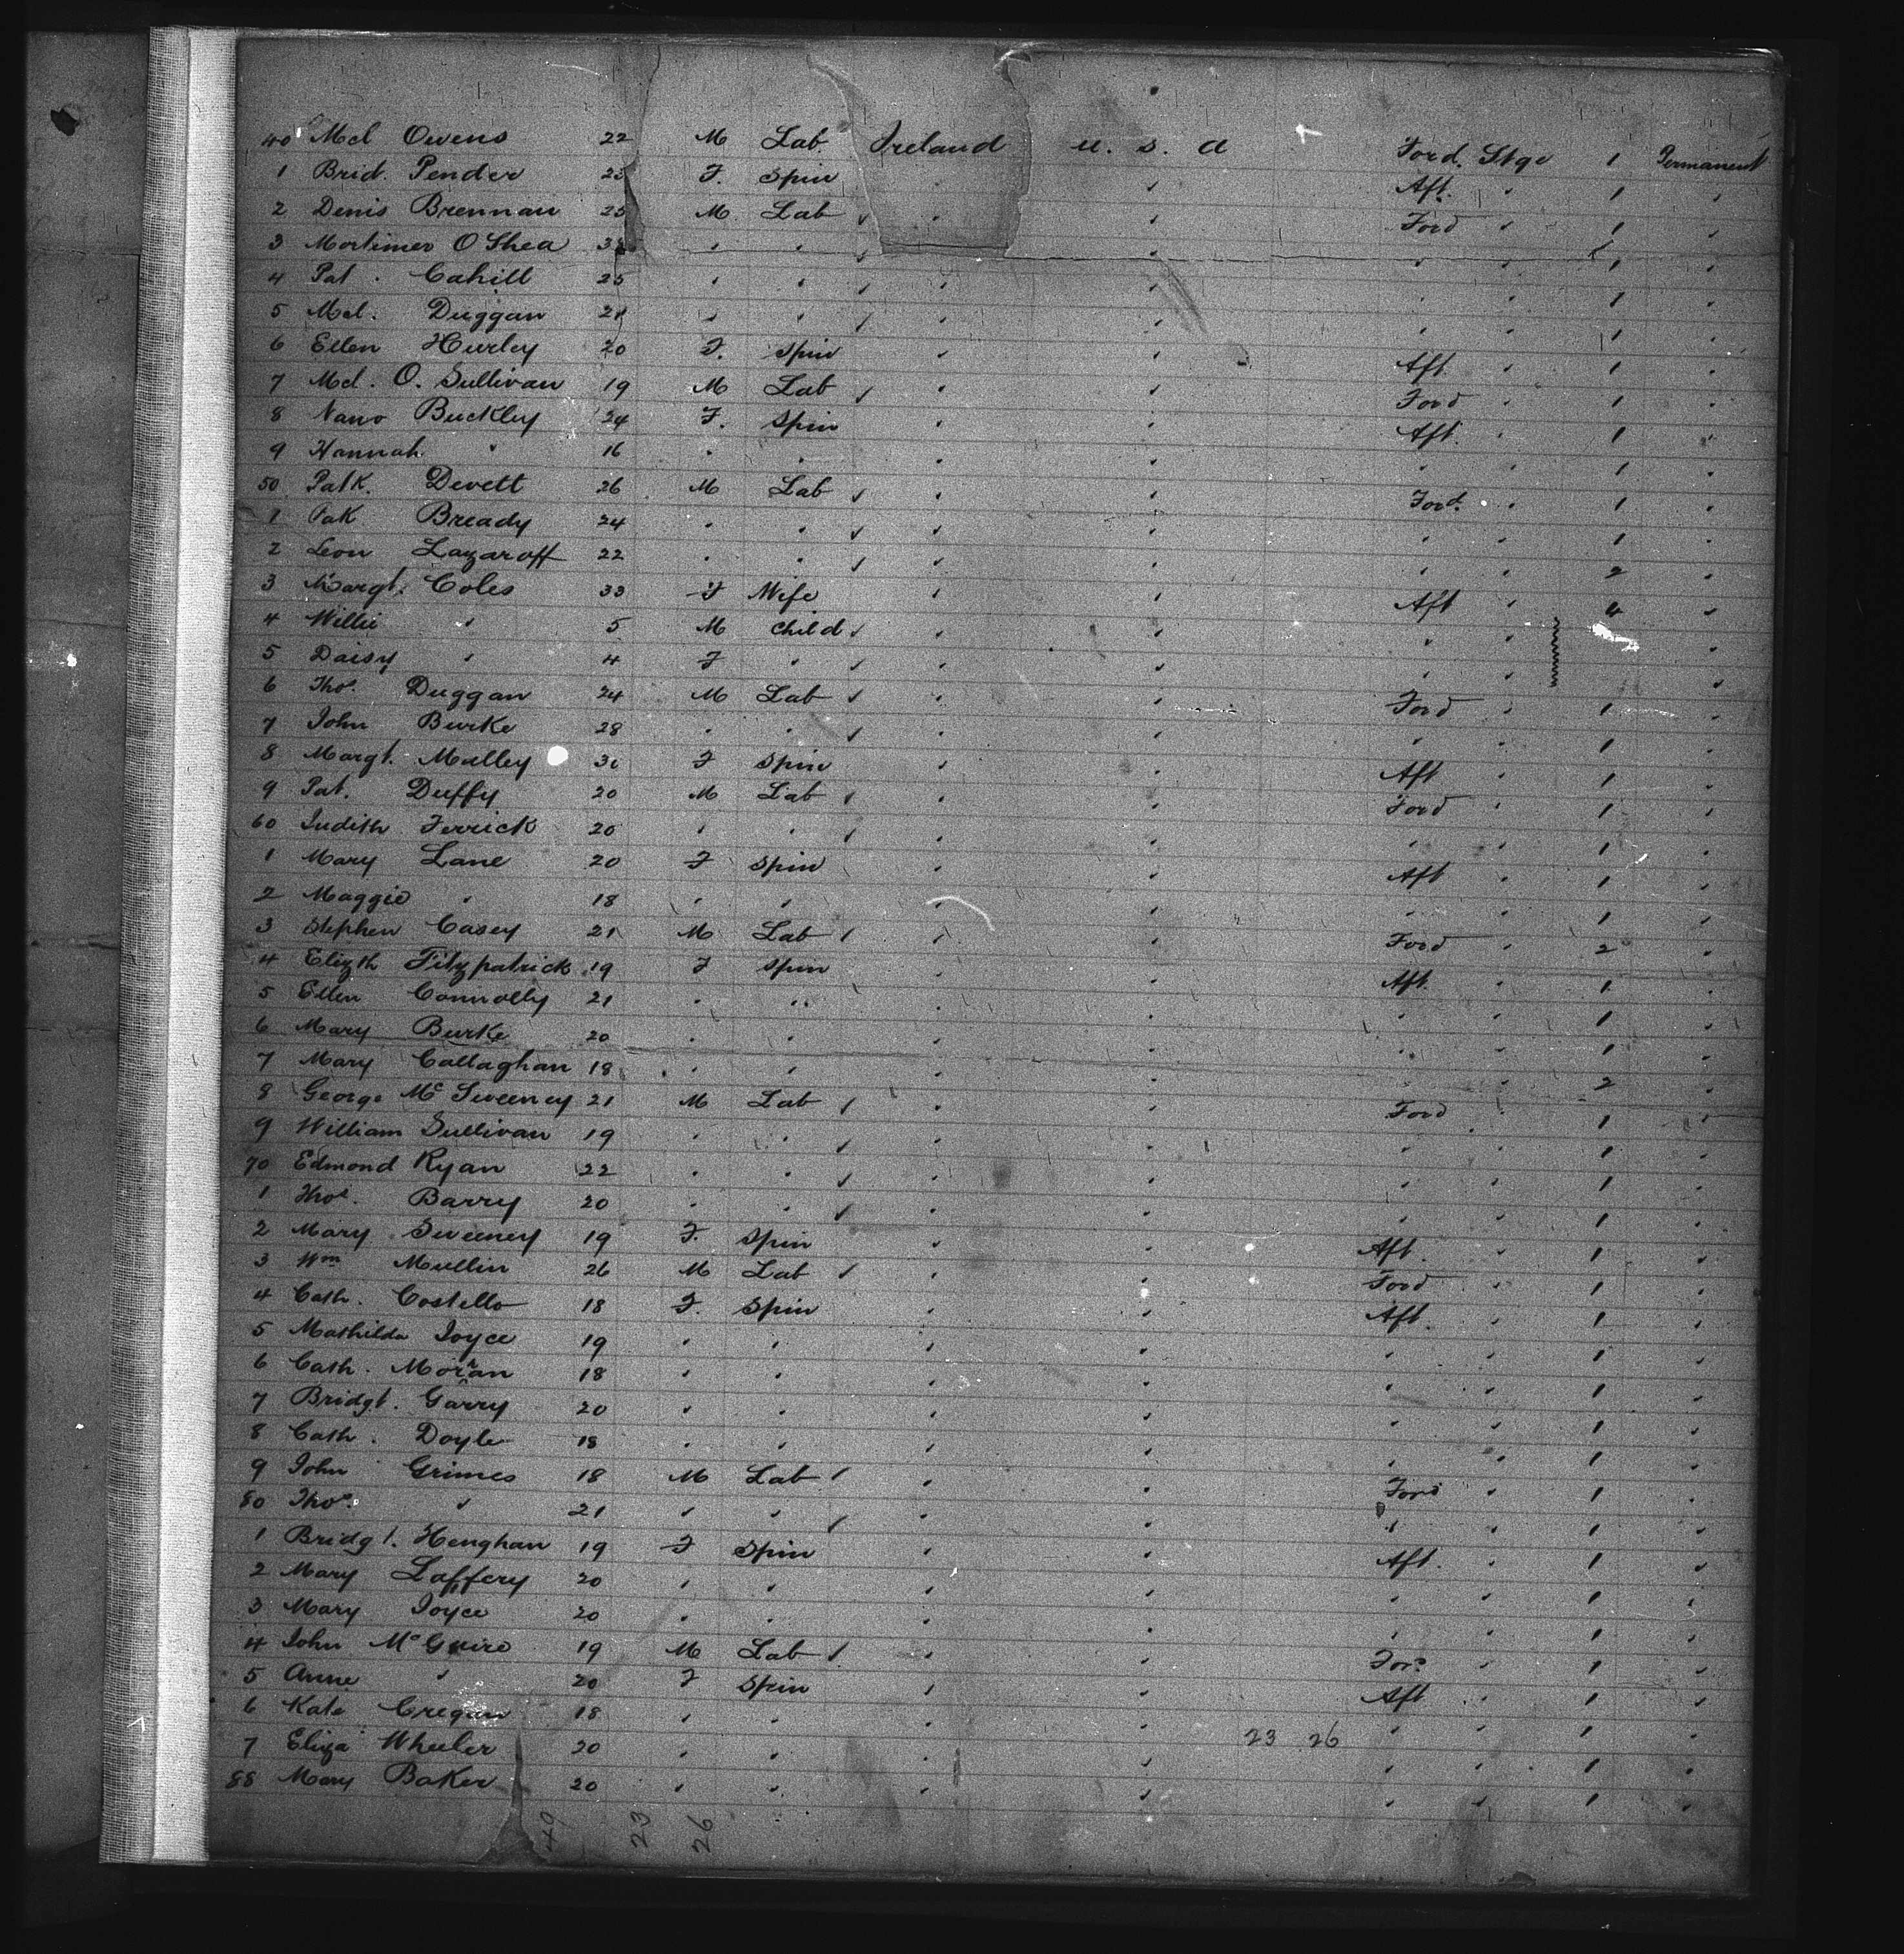 40 Mcl Owens 22 M Lab Ireland u. s. a Ford. Stge 1 Permanent
1 Brid. Pender 23 F. Spin " " Aft. " 1 "
2 Denis Brennan 25 M Lab ✓ " " Ford " 1 "
3 Mortimer O Shea " " ✓ " " " 1 "
4 Pat. Cahill 25 " " ✓ " " " " 1 "
5 Mcl. Duggan 21 " " ✓ " " " " 1 "
6 Ellen Hurley 20 F. Spin " " Aft. " 1 "
7 Mcl. O. Sullivan 19 M Lab ✓ " " Ford " 1 "
8 Nano Buckley 24 F. Spin " " Aft. " 1 "
9 Hannah " 16 " " " " " " 1 "
50 Patk. Devett 26 M Lab ✓ " " Ford. " 1 "
1 Pak Bready 24 " " ✓ " " " " 1 "
2 Leon Lazaroff 22 " " ✓ " " " " 2 "
3 Margt. Coles 33 F Wife " " Aft " 4 "
4 Willie " 5 M Child ✓ " " " " "
5 Daisy " 4 F " ✓ " " " " "
6 Thos. Duggan 24 M Lab ✓ " " Ford " 1 "
7 John Burke 28 " " ✓ " " " " 1 "
8 Margt. Malley F Spin " " Aft " 1 "
9 Pat. Duffy 20 M Lab ✓ " " Ford " 1 "
60 Judith Ferrick 20 " " ✓ " " " " 1 "
1 Mary Lane 20 F Spin " " Aft " 1 "
2 Maggie " 18 " " " " " " 1 "
3 Stephen Casey 21 M Lab ✓ " " Ford " 2 "
4 Elizth Fitzpatrick 19 F Spin " " Aft. " 1 "
5 Ellen Connolly 21 " " " " " " 1 "
6 Mary Burke 20 " " " " " " 1 "
7 Mary Callaghan 18 " " " " " " 2 "
8 George Mc Sweeney 21 M Lab ✓ " " Ford " 1 "
9 William Sullivan 19 " " ✓ " " " " 1 "
70 Edmond Ryan 22 " " ✓ " " " " 1 "
1 Thos. Barry 20 " " ✓ " " " " 1 "
2 Mary Sweeney 19 F. Spin " " Aft. " 1 "
3 Wm Mullin 26 M Lab ✓ " " Ford " 1 "
4 Cath. Costello 18 F. Spin " " Aft. " 1 "
5 Mathilda Joyce 19 " " " " " " 1 "
6 Cath. Moran 18 " " " " " " 1 "
7 Bridgt. Garry 20 " " " " " " 1 "
8 Cath. Doyle 18 " " " " " " 1 "
9 John Grimes 18 M Lab ✓ " " Ford " 1 "
80 Thos. " 21 " " ✓ " " " " 1 "
1 Bridgt. Henghan 19 F Spin " " Aft. " 1 "
2 Mary Laffery 20 " " " " " " 1 "
3 Mary Joyce 20 " " " " " " 1 "
4 John McGuire 19 M Lab ✓ " " Ford " 1 "
5 Anne " 20 F Spin " " Aft " 1 "
6 Kate Cregan 18 " " " " " " 1 "
7 Eliza Wheeler 20 " " " " 23 26 " " 1 "
88 Mary Baker 20 " " " " " " 1 "
49 23 26